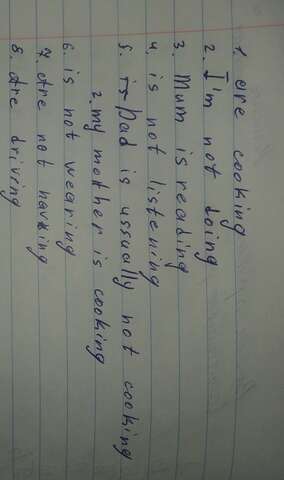 1 are cooking
2. I'm not doing
3. Mum is reading
4. is not listening
5. Dad is ussually not cooking
2. my mother is cooking
6. is not wearing
7. Are not having
8. Are driving